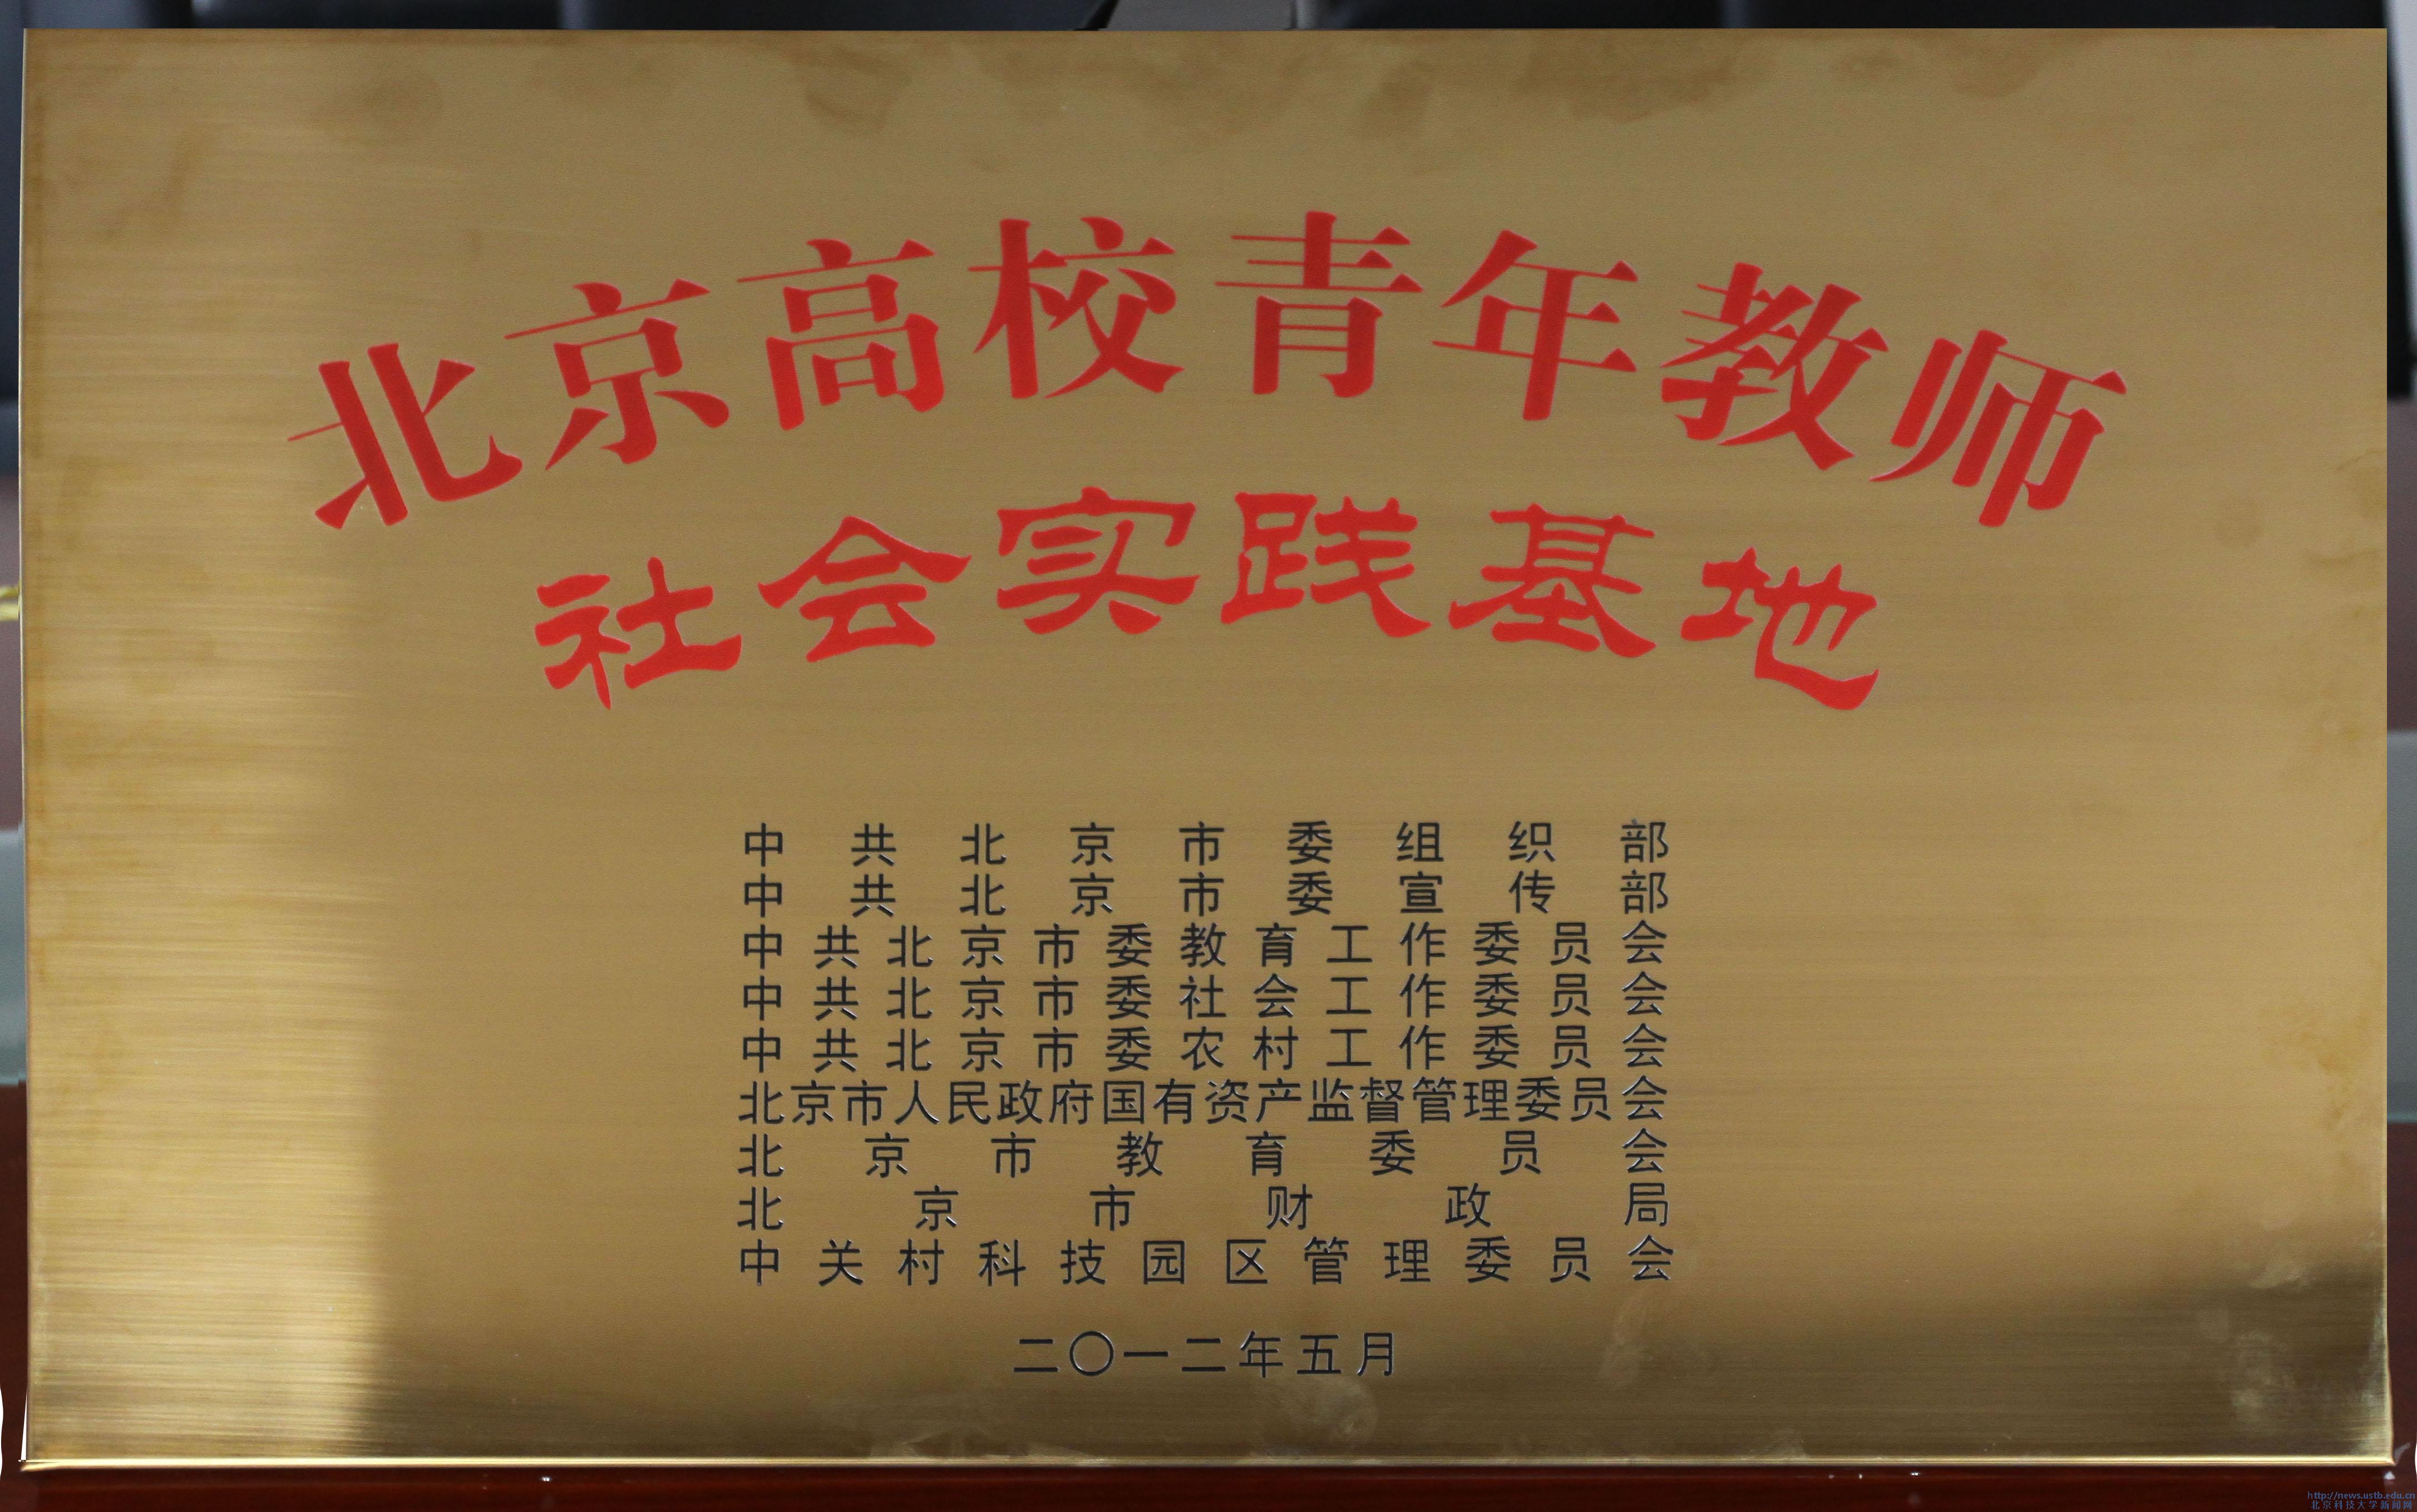 北京高校青年教师
社会实践基地
中共北京市委组织部
中共北京市委宣传部
中共北京市委教育工作委员会
中共北京市委社会工作委员会
中共北京市委农村工作委员会
北京市人民政府国有资产监督管理委员会
北京市教育委员会
北京市财政局
中关村科技园区管理委员会
二〇一二年五月
http://news.ustb.edu.cn
北京科技大学新闻网